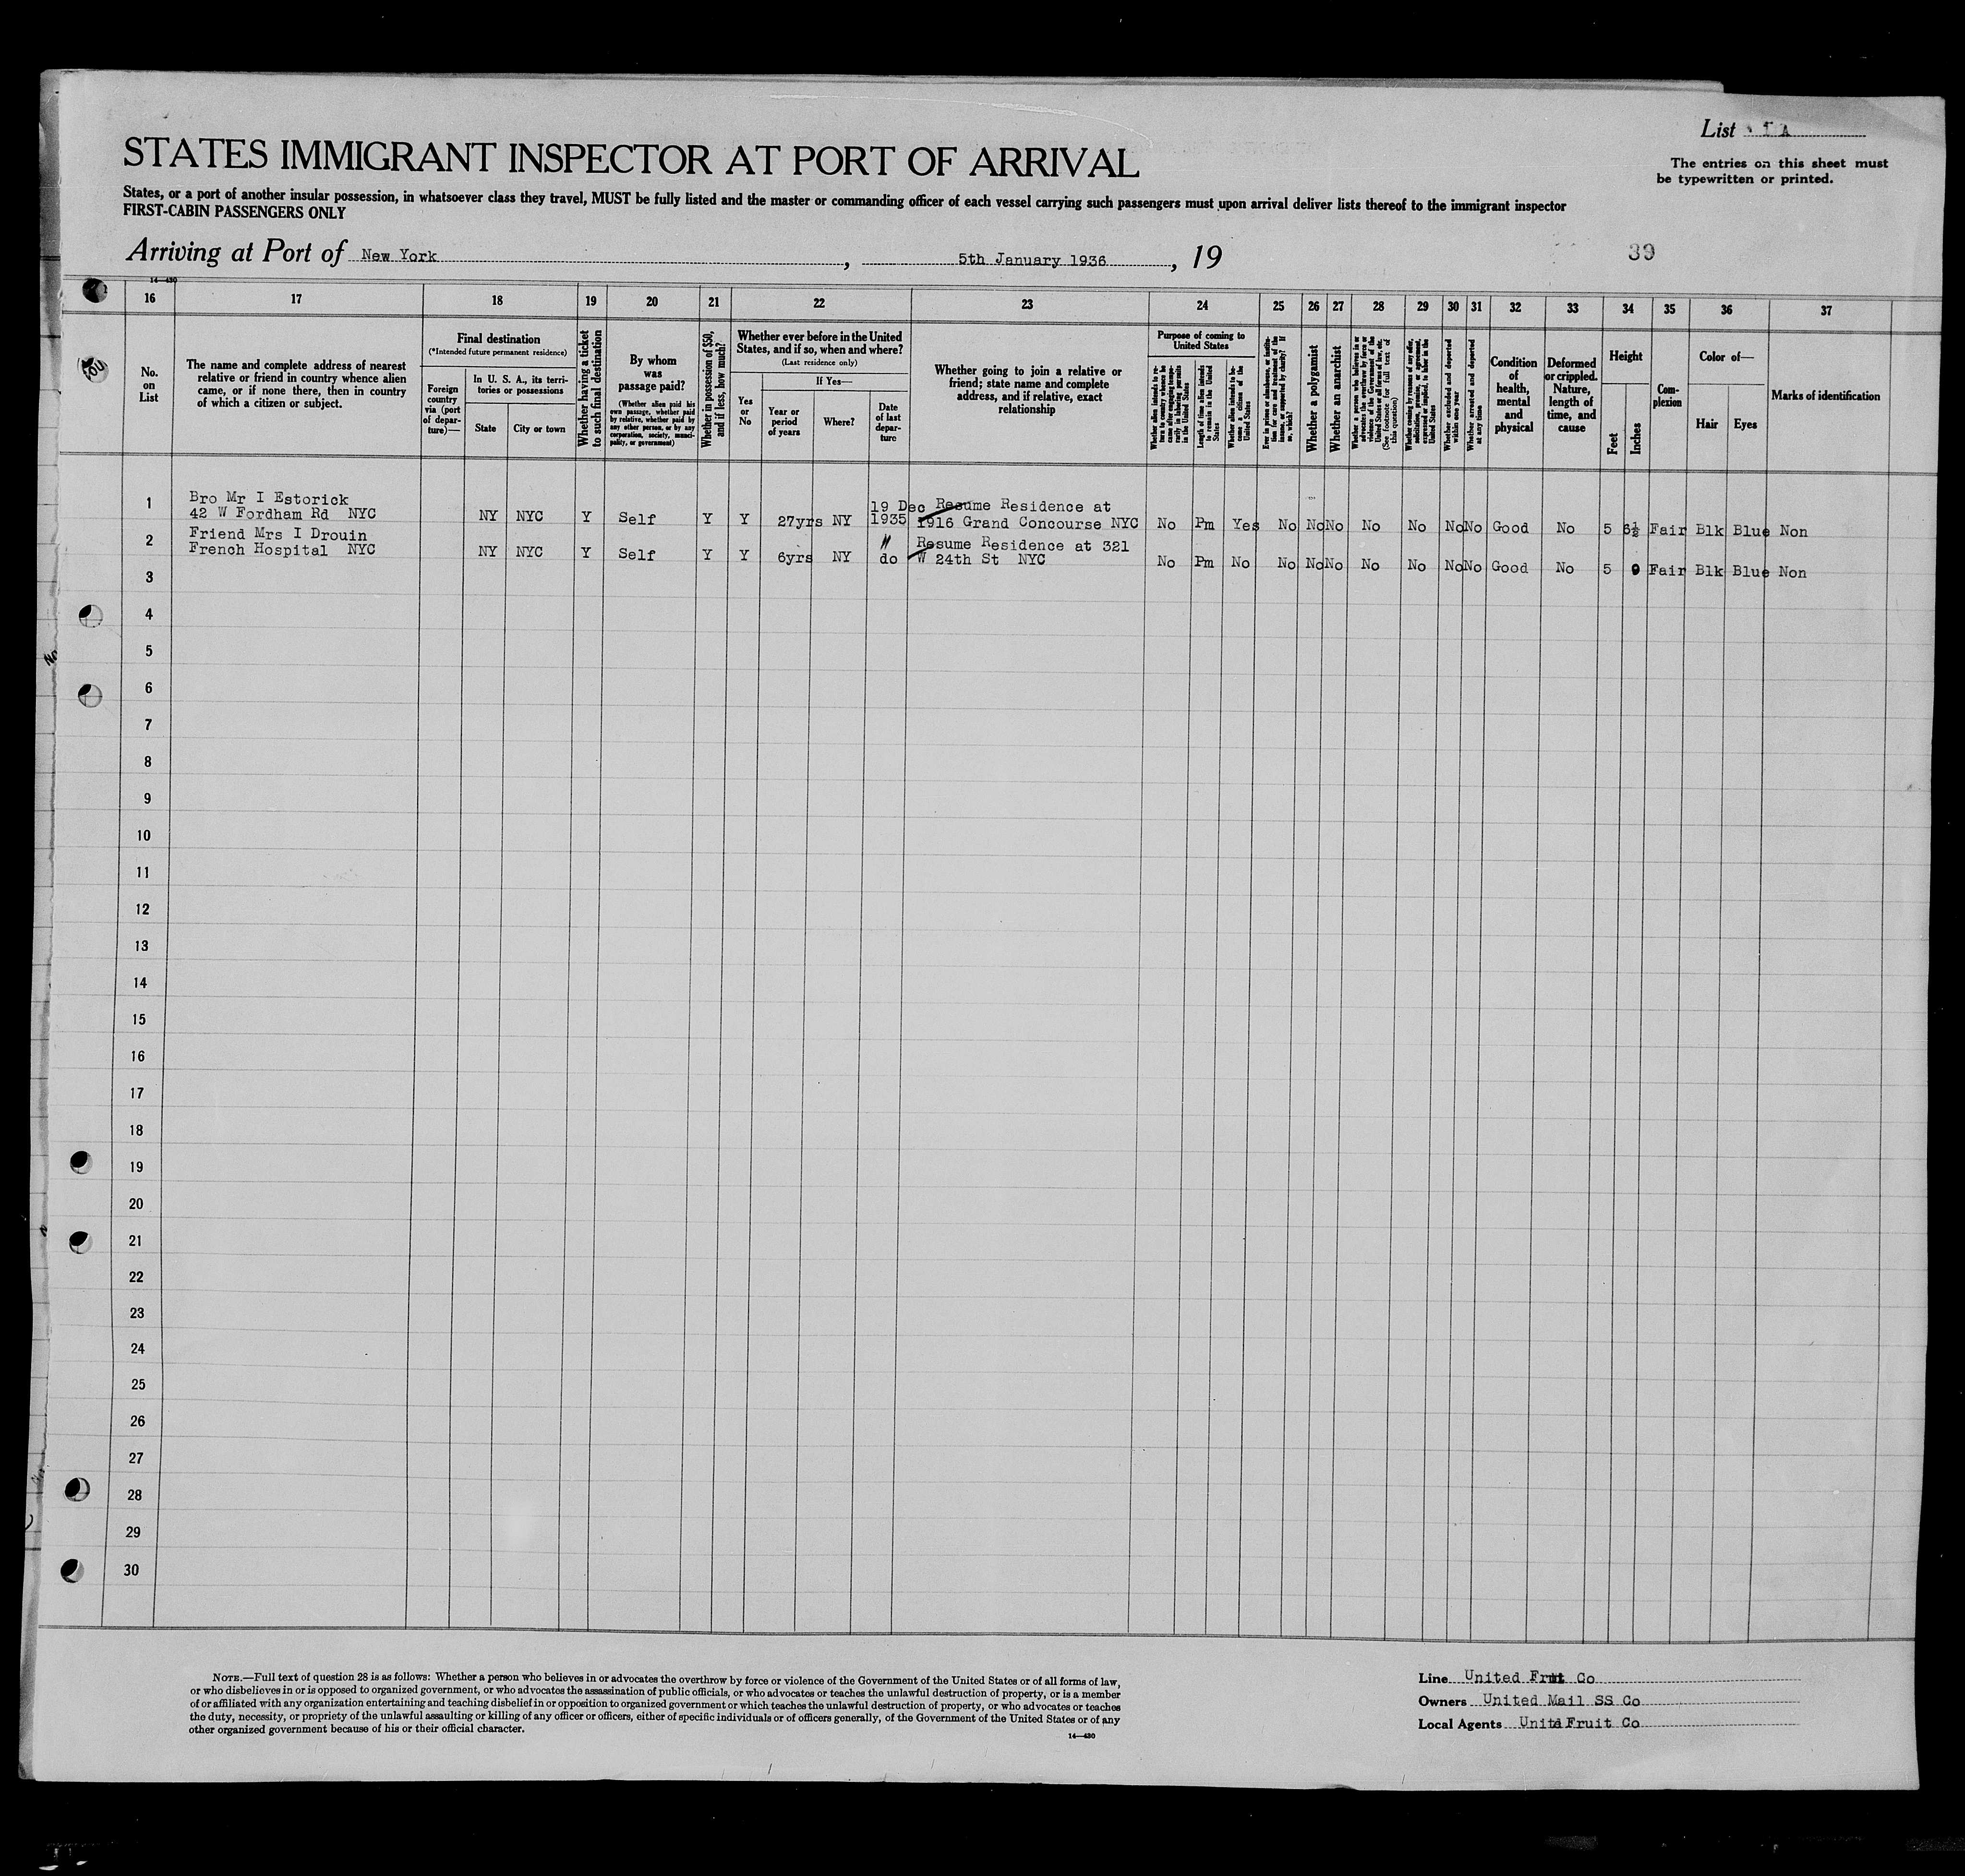 List
STATES IMMIGRANT INSPECTOR AT PORT OF ARRIVAL
The entries on this sheet must
be typewritten or printed.
States, or a port of another insular possession, in whatsoever class they travel, MUST be fully listed and the master or commanding officer of each vessel carrying such passengers must upon arrival deliver lists thereof to the immigrant inspector
FIRST-CABIN PASSENGERS ONLY
Arriving at Port of New York, 5th January 1936, 19
39
14—430
16 17 18 19 20 21 22 23 24 25 26 27 28 29 30 31 32 33 34 35 36 37
No.
on
List
The name and complete address of nearest
relative or friend in country whence alien
came, or if none there, then in country
of which a citizen or subject.
Final destination
(*Intended future permanent residence)
Foreign
country
via (port
of depar-
ture)—
In U. S. A., its terri-
tories or possessions
State
City or town
Whether having a ticket
to such final destination
By whom
was
passage paid?
(Whether alien paid his
own passage, whether paid
by relative, whether paid by
any other person, or by any
corporation, society, munici-
pality, or government)
Whether in possession of $50,
and if less, how much?
Whether ever before in the United
States, and if so, when and where?
(Last residence only)
Yes
or
No
If Yes—
Year or
period
of years
Where?
Date
of last
depar-
ture
Whether going to join a relative or
friend; state name and complete
address, and if relative, exact
relationship
Purpose of coming to
United States
Whether alien intends to re-
turn to country whence he
came after engaging tempo-
rarily in laboring pursuits
in the United States
Length of time alien intends
to remain in the United
States
Whether alien intends to be-
come a citizen of the
United States
Ever in prison or almshouse, or institu-
tion for care and treatment of the
insane, or supported by charity? If
so, which?
Whether a polygamist
Whether an anarchist
Whether a person who believes in or
advocates the overthrow by force or
violence of the Government of the
United States or all forms of law, etc.
(See footnote for full text of
this question)
Whether coming by reason of any offer,
solicitation, promise, or agreement,
expressed or implied, to labor in the
United States
Whether excluded and deported
within one year
Whether arrested and deported
at any time
Condition
of
health,
mental
and
physical
Deformed
or crippled.
Nature,
length of
time, and
cause
Height
Feet
Inches
Com-
plexion
Color of—
Hair
Eyes
Marks of identification
1 Bro Mr I Estorick 19 Dec Resume Residence at
42 W Fordham Rd NYC NY NYC Y Self Y Y 27yrs NY 1935 1916 Grand Concourse NYC No Pm Yes No No No No No No No Good No 5 6½ Fair Blk Blue Non
2 Friend Mrs I Drouin " Resume Residence at 321
French Hospital NYC NY NYC Y Self Y Y 6yrs NY do W 24th St NYC No Pm No No No No No No No No Good No 5 9 Fair Blk Blue Non
3
4
5
6
7
8
9
10
11
12
13
14
15
16
17
18
19
20
21
22
23
24
25
26
27
28
29
30
NOTE.—Full text of question 28 is as follows: Whether a person who believes in or advocates the overthrow by force or violence of the Government of the United States or of all forms of law,
or who disbelieves in or is opposed to organized government, or who advocates the assassination of public officials, or who advocates or teaches the unlawful destruction of property, or is a member
of or affiliated with any organization entertaining and teaching disbelief in or opposition to organized government or which teaches the unlawful destruction of property, or who advocates or teaches
the duty, necessity, or propriety of the unlawful assaulting or killing of any officer or officers, either of specific individuals or of officers generally, of the Government of the United States or of any
other organized government because of his or their official character.
14—430
Line United Fruit Co
Owners United Mail SS Co
Local Agents Unitd Fruit Co